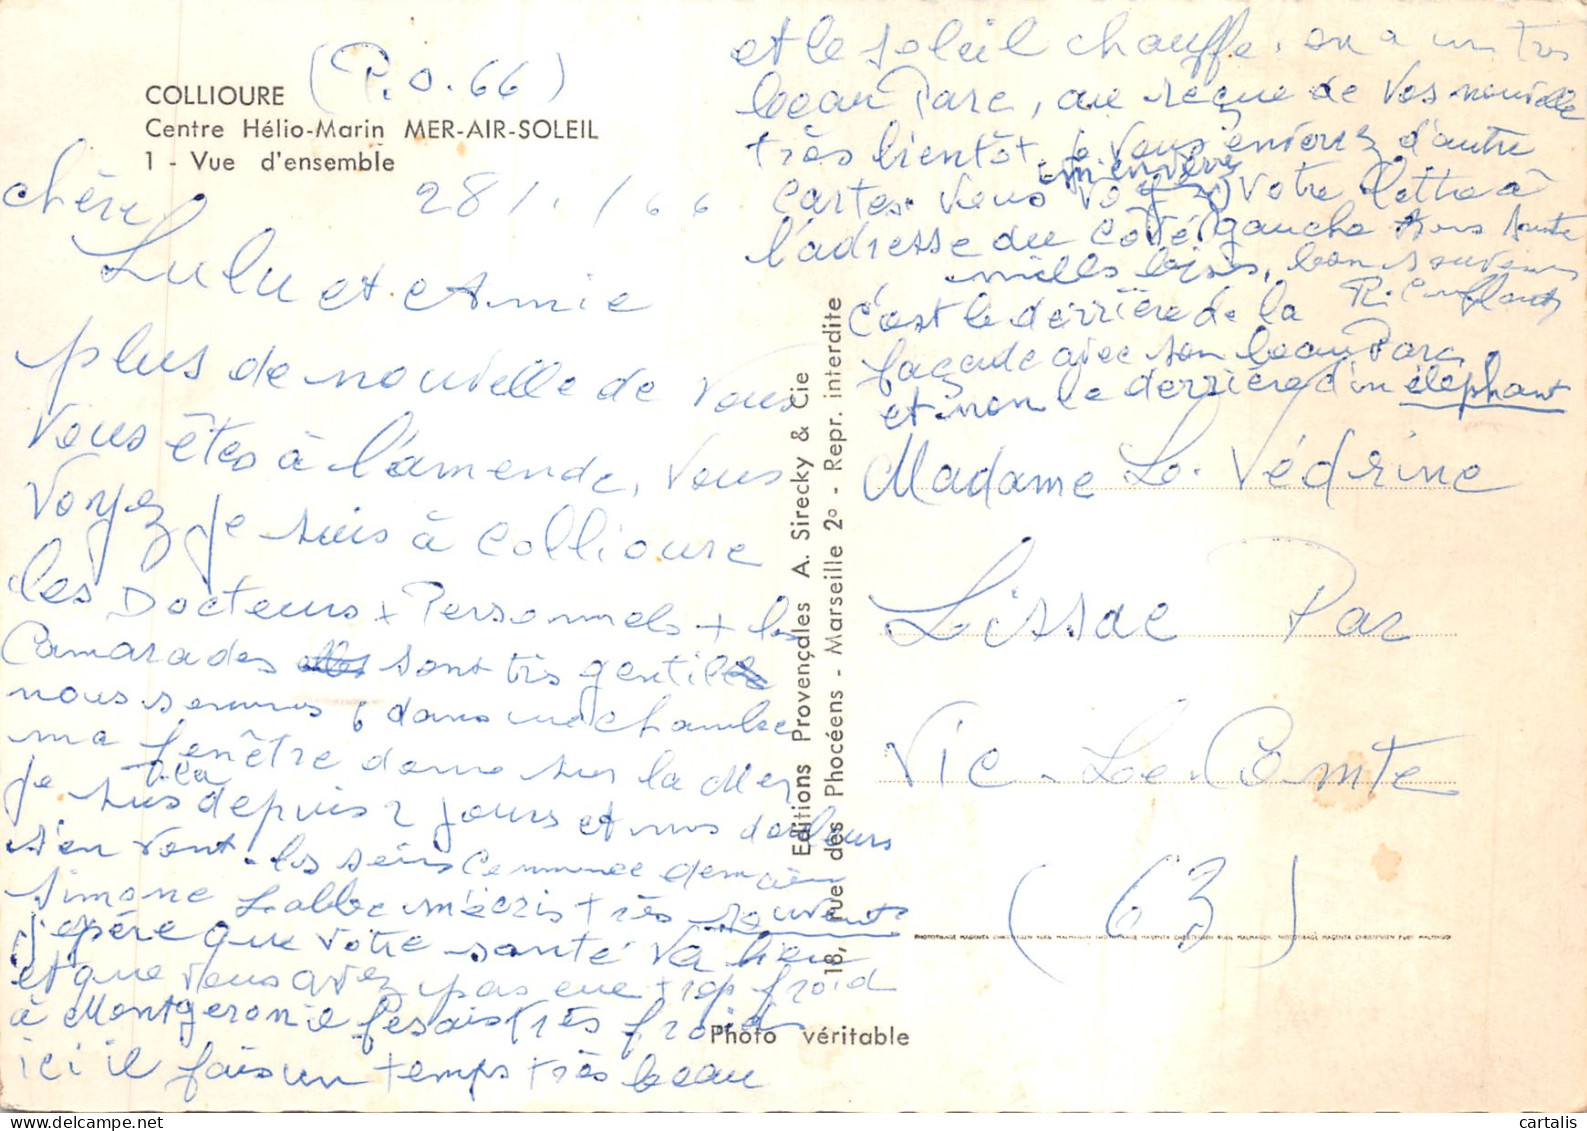 COLLIOURE (P.O. 66)
Centre Hélio-Marin MER-AIR-SOLEIL
1 - Vue d'ensemble
28/ / 66
chère
Lulu et Amie
plus de nouvelle de vous
vous êtes à l'amende, vous
voyez je suis à Collioure
les Docteurs + Personnels + les
Camarades sont très gentils
nous sommes 6 dans une chambre
ma fenêtre donne sur la Mer
je suis là depuis 2 jours et nos douleurs
s'en vont. les soins commence demain
Simone Labbe m'écris très souvent
j'espère que votre santé va bien
et que vous avez pas eue trop froid
à Montgeron il fesais très froid
ici il fais un temps très beau
et le soleil chauffe. on a un très
beau Parc, au reçue de vos nouvelle
très bientôt, je vous enverrez d'autre
cartes. vous m'enverrez votre lettre à
l'adresse du côté gauche
mille bises, bon souvenirs
c'est le derrière de la
façade avec son beau Parc,
et non le derrière d'un éléphant
Madame Le. Védrine
Lissac Par
Vic-Le-Comte
(63)
Editions Provençales A. Sirecky & Cie
18, rue des Phocéens - Marseille 2º - Repr. interdite
Photo véritable
cartalis